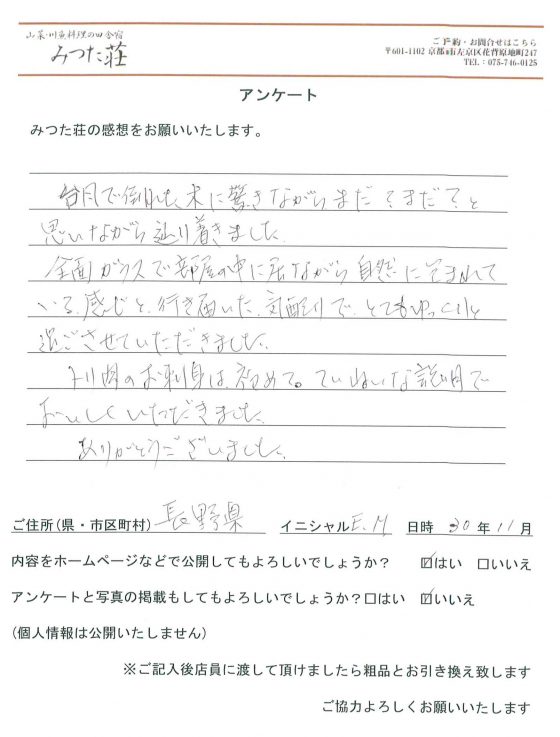 山菜・川魚料理の田舎宿
みつた荘
ご予約・お問合せはこちら
〒601-1102 京都市左京区花背原地町247
TEL：075-746-0125
アンケート
みつた荘の感想をお願いいたします。
台風で倒れた木に驚きながらまだ？まだ？と
思いながら辿り着きました。
全面ガラスで部屋の中に居ながら自然に包まれて
いる感じと、行き届いた気配りで、とてもゆっくりと
過ごさせていただきました。
川肉のお刺身は初めて。ていねいな説明で
おいしくいただきました。
ありがとうございました。
ご住所(県・市区町村) 長野県 イニシャル E.M 日時 30年11月
内容をホームページなどで公開してもよろしいでしょうか？ ☑はい □いいえ
アンケートと写真の掲載もしてもよろしいでしょうか？□はい ☑いいえ
(個人情報は公開いたしません)
※ご記入後店員に渡して頂けましたら粗品とお引き換え致します
ご協力よろしくお願いいたします